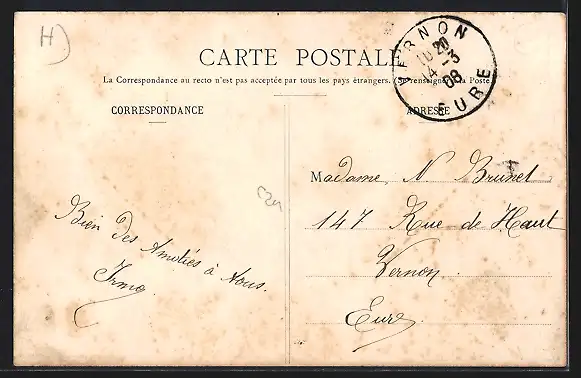 H)
CARTE POSTALE
La Correspondance au recto n'est pas acceptée par tous les pays étrangers. (Se renseigner à la Poste
CORRESPONDANCE
ADRESSE
VERNON
10 20
14 -3
08
EURE
Madame N. Brunet
147 Rue de Haut
Vernon
Eure
Bien des Amitiés à Vous.
Irma